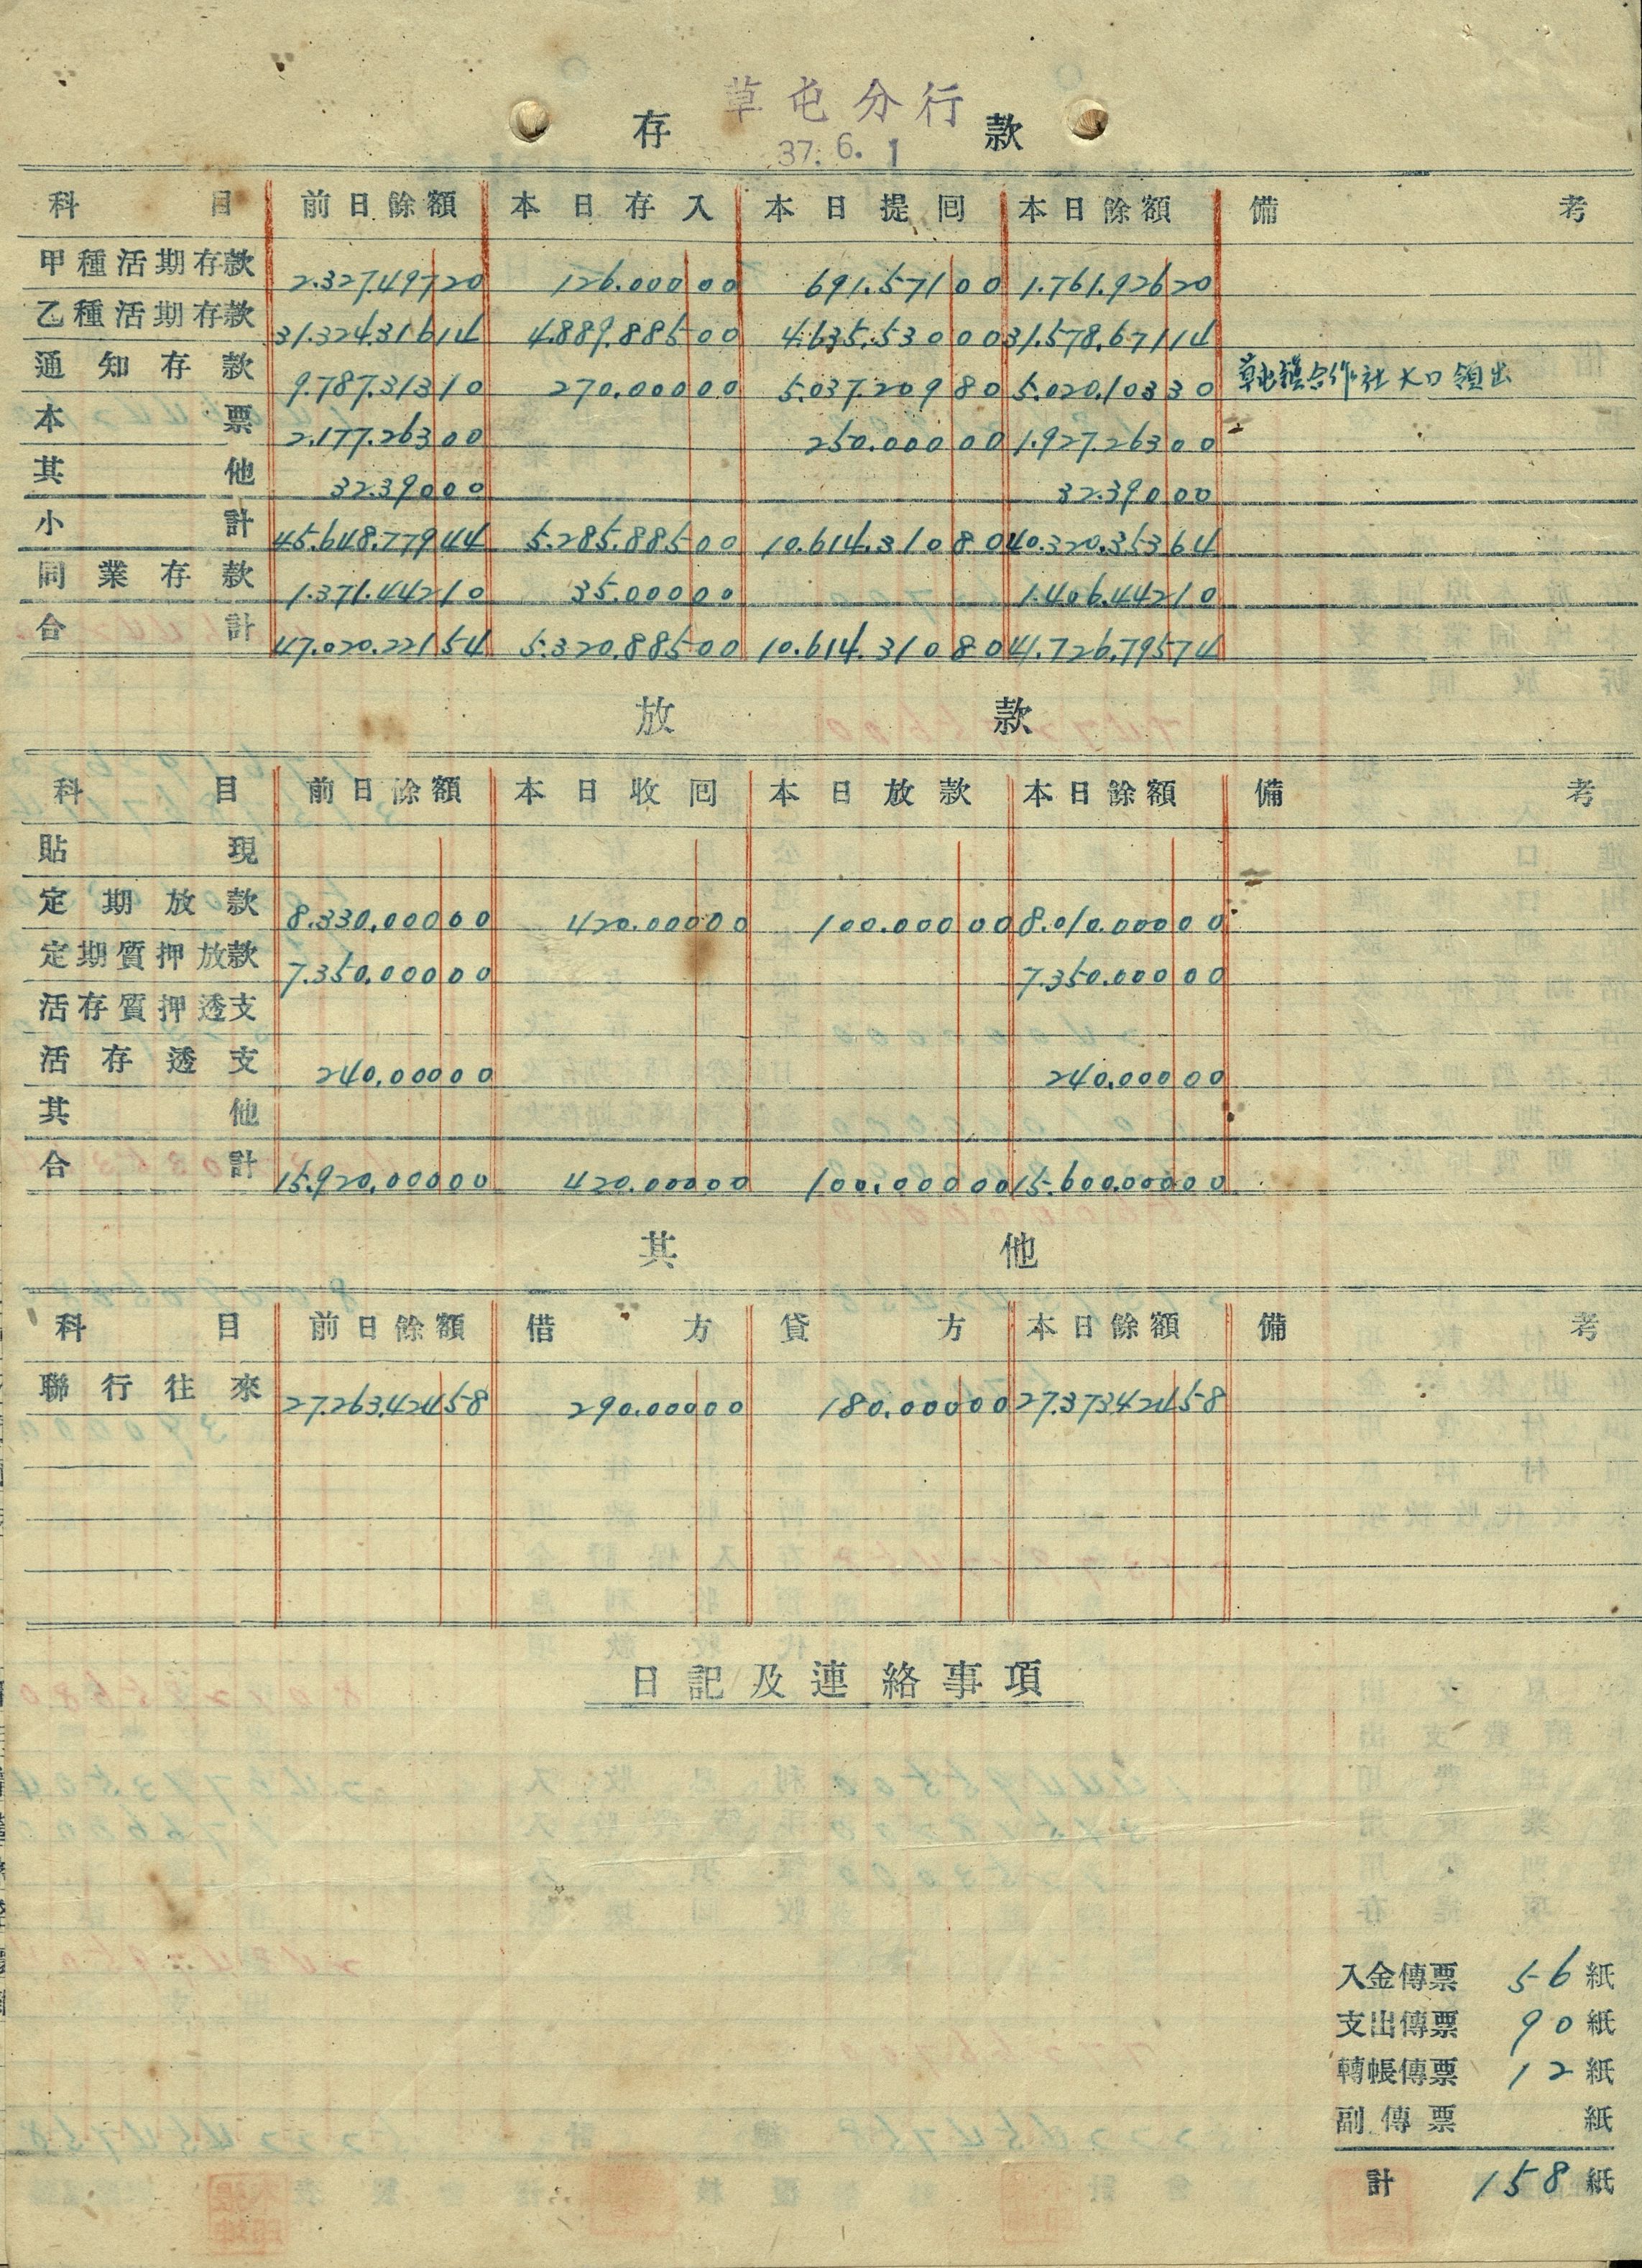 草屯分行
存 款
37. 6. 1
科目 前日餘額 本日存入 本日提回 本日餘額 備考
甲種活期存款 2.327.497 20 126.000 00 691.571 00 1.761.926 20
乙種活期存款 31.324.316 14 4.889.885 00 4.635.530 00 31.578.671 14
通知存款 9.787.313 10 270.000 00 5.037.209 80 5.020.103 30 草屯鎮合作社大口領出
本票 2.177.263 00 250.000 00 1.927.263 00
其他 32.390 00 32.390 00
小計 45.648.779 44 5.285.885 00 10.614.310 80 40.320.353 64
同業存款 1.371.442 10 35.000 00 1.406.442 10
合計 47.020.221 54 5.320.885 00 10.614.310 80 41.726.795 74
放 款
科目 前日餘額 本日收回 本日放款 本日餘額 備考
貼現
定期放款 8.330.000 00 420.000 00 100.000 00 8.010.000 00
定期質押放款 7.350.000 00 7.350.000 00
活存質押透支
活存透支 240.000 00 240.000 00
其他
合計 15.920.000 00 420.000 00 100.000 00 15.600.000 00
其 他
科目 前日餘額 借方 貸方 本日餘額 備考
聯行往來 27.263.424 58 290.000 00 180.000 00 27.373.424 58
日記及連絡事項
入金傳票 56 紙
支出傳票 90 紙
轉帳傳票 12 紙
副傳票 紙
計 158 紙